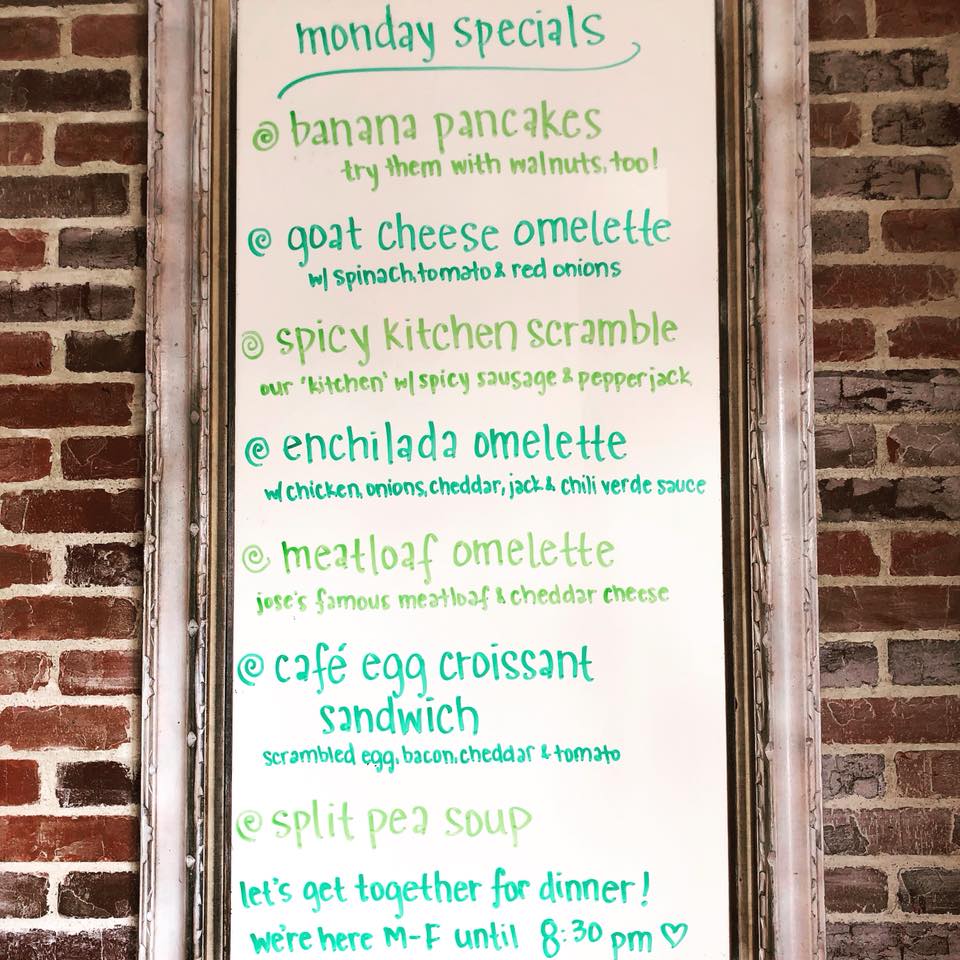 monday specials
@ banana pancakes
try them with walnuts, too!
@ goat cheese omelette
w/ spinach, tomato & red onions
@ spicy kitchen scramble
our 'kitchen' w/ spicy sausage & pepperjack
@ enchilada omelette
w/ chicken, onions, cheddar, jack & chili verde sauce
@ meatloaf omelette
jose's famous meatloaf & cheddar cheese
@ café egg croissant
sandwich
scrambled egg, bacon, cheddar & tomato
@ split pea soup
let's get together for dinner!
we're here M-F until 8:30 pm ♡